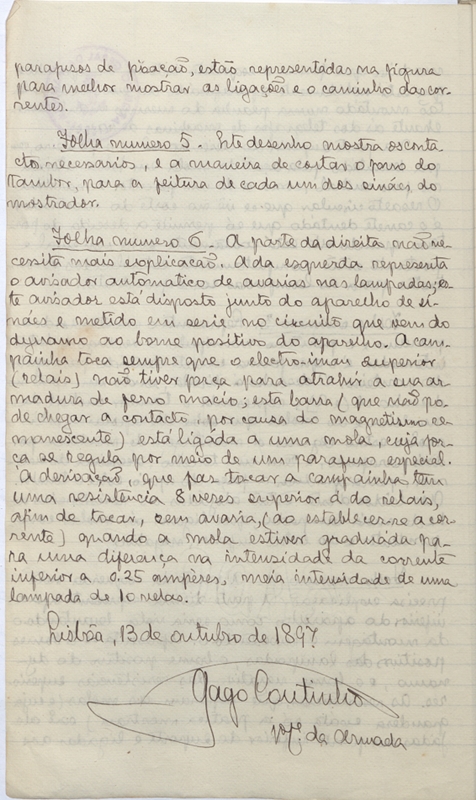 parafusos de pòação, estão representádas na figura
para melhor mostrar as ligações e o caminho das cor-
rentes.
Folha numero 5. Este desenho mostra os conta-
ctos necessarios, e a maneira de cortar o ferro do
tambor, para a feitura de cada um dos sináes do
mostrador.
Folha numero 6. A parte da direita não ne-
cessita mais explicação. A da esquerda representa
o avisador automatico de avarias nas lampadas; es-
te avisador está disposto junto do aparelho de si-
náes e metido em serie no circuito que vem do
dynamo ao borne positivo do aparelho. A cam-
painha toca sempre que o electro-iman superior
(relais) não tiver força para atrahir a sua ar-
madura de ferro macio; esta barra (que não pó-
de chegar a contacto, por causa do magnetismo re-
manescente) está ligada a uma mola, cuja for-
ça se regula por meio de um parafuso especial.
A derivação, que faz tocar a campainha tem
uma resistencia 8 vezes superior á do relais,
afim de tocar, sem avaria, (ao establecer-se a cor-
rente) quando a mola estiver graduáda pa-
ra uma diferença na intensidade da corrente
inferior a 0.25 ampères, meia intensidade de uma
lampada de 10 velas.
Lisbôa, 13 de outubro de 1897
Gago Coutinho
da Armada